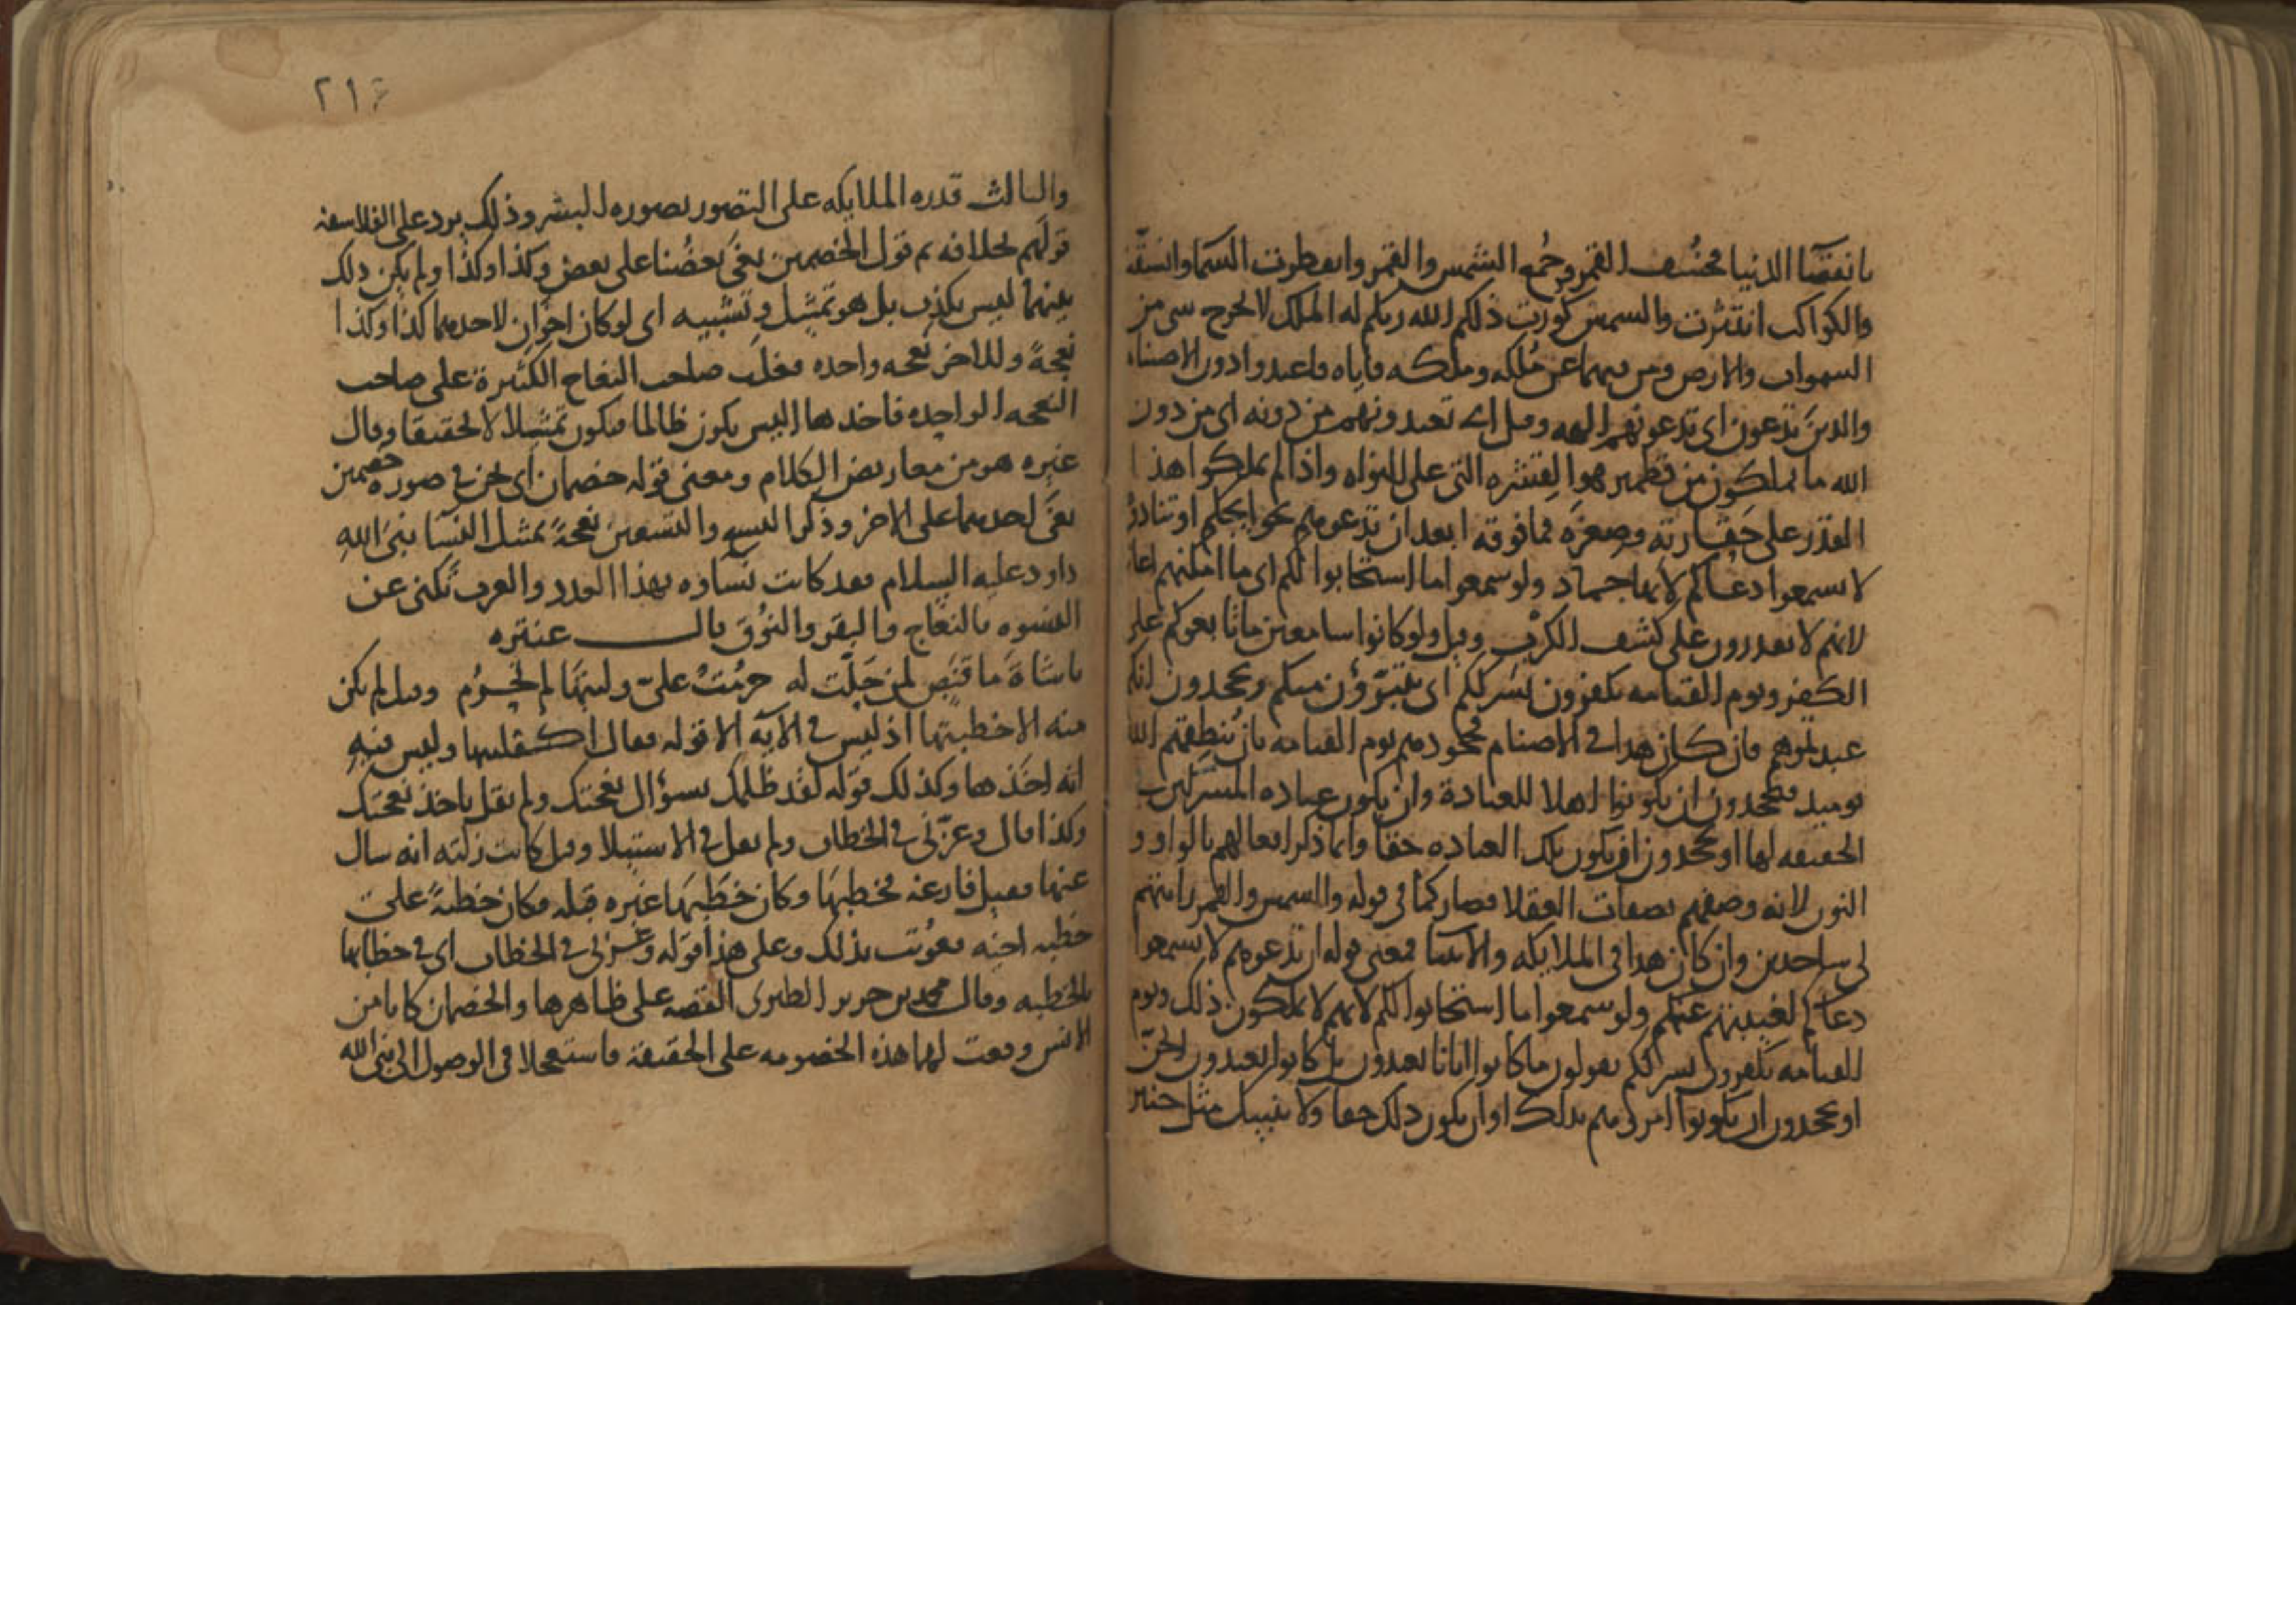 بانقضا الدنيا فخسف القمر وجُمع الشمس والقمر وانفطرت السما وانشقت
والكواكب انتثرت والشمس كورت ذلكم الله ربكم له الملك لا يخرج شي من
السموات والارض ومن فيهما عن مُلكه وملكه فاياه فاعبدوا دون الاصنام
والذين تدعون اى تدعونهم الهه وقيل اى تعبدونهم من دونه اى من دون
الله ما يملكون من قطمير هو القشره التى على النواه واذا لم يملكوا هذا
القدر على حقارته وصغره فما فوقه ابعد ان تدعوهم لحوايجكم او تنادوا
لا يسمعوا دعاكم لانها جماد ولو سمعوا ما استجابوا لكم اى ما امكنهم اغا
لانهم لا يقدرون على كشف الكرب وقيل ولو كانوا سامعين ما تابعوكم على
الكفر ويوم القيامه يكفرون بشرككم اى يتبرؤن منكم ويجحدون انكم
عبدتموهم فان كان هذا في الاصنام فجحودهم يوم القيامه بان يُنطقهم الله
يوميذ فيجحدون ان يكونوا اهلا للعبادة وان يكون عباده المشركين
الحقيقه لها او يجحدون ان يكون تلك العباده حقا وانما ذكر افعالهم بالواو و
النون لانه وصفهم بصفات العقلا فصار كما في قوله والشمس والقمر رايتهم
لى ساجدين وان كان هذا في الملايكه والانبيا فمعنى قوله ان تدعوهم لا يسمعوا
دعاكم لغيبتهم عنكم ولو سمعوا ما استجابوا لكم لانهم لا يملكون ذلك ويوم
القيامه يكفرون بشرككم يقولون ما كانوا ايانا يعبدون بل كانوا يعبدون الجنّ
او يجحدون ان يكونوا امروهم بذلك او ان يكون ذلك حقا ولا ينبيك مثل خبير
٢١٤
والثالث قدره الملايكه على التصور بصوره البشر وذلك يرد على الفلاسفه
قولهم بخلافه ثم قول الخصمين بغى بعضُنا على بعض وكذا وكذا ولم يكن ذلك
بينهما ليس بكذب بل هو تمثيل وتشبيه اى لو كان اخوان لاحدهما كذا وكذا
نعجةً وللاخر نعجه واحده فغلب صاحب النعاج الكثيرة على صاحب
النعجه الواحده فاخذها اليس يكون ظالما فيكون تمثيلا لا تحقيقا وقال
غيره هو من معاريض الكلام ومعنى قوله خصمان اى نحن في صوره خصمين
بغى احدهما على الاخر وذكر التسع والتسعين نعجةً بمثل النسا نبىّ الله
داود عليه السلام فقد كانت نساوه بهذا العدد والعرب تكنى عن
النسوه بالنعاج والبقر والنُوق قال عنتره
ياشاةَ ما قَنَصٍ لمن حَلّت له حرُمَتْ علىّ وليتها لم تَحرُم وقيل لم يكن
منه الا خطبتها اذ ليس في الآيه الا قوله فقال اكفلنيها وليس فيه
انه اخذها وكذلك قوله لقد ظلمك بسؤال نعجتك ولم يقل باخذ نعجتك
وكذا قال وعزّنى في الخطاب ولم يقل في الاستيلا وقيل كانت زلّته انه سال
عنها فقيل فارغه فخطبها وكان خَطَبَها غيره قبله فكان خطبةً على
خطبه اخيه فعوتب بذلك وعلى هذا قوله وعزنى في الخطاب اى في خطابها
بالخطبه وقال محمد بن جرير الطبرى القصه على ظاهرها والخصمان كانا من
الانس وقعت لهما هذه الخصومه على الحقيقه فاستعجلا في الوصول الى نبى الله